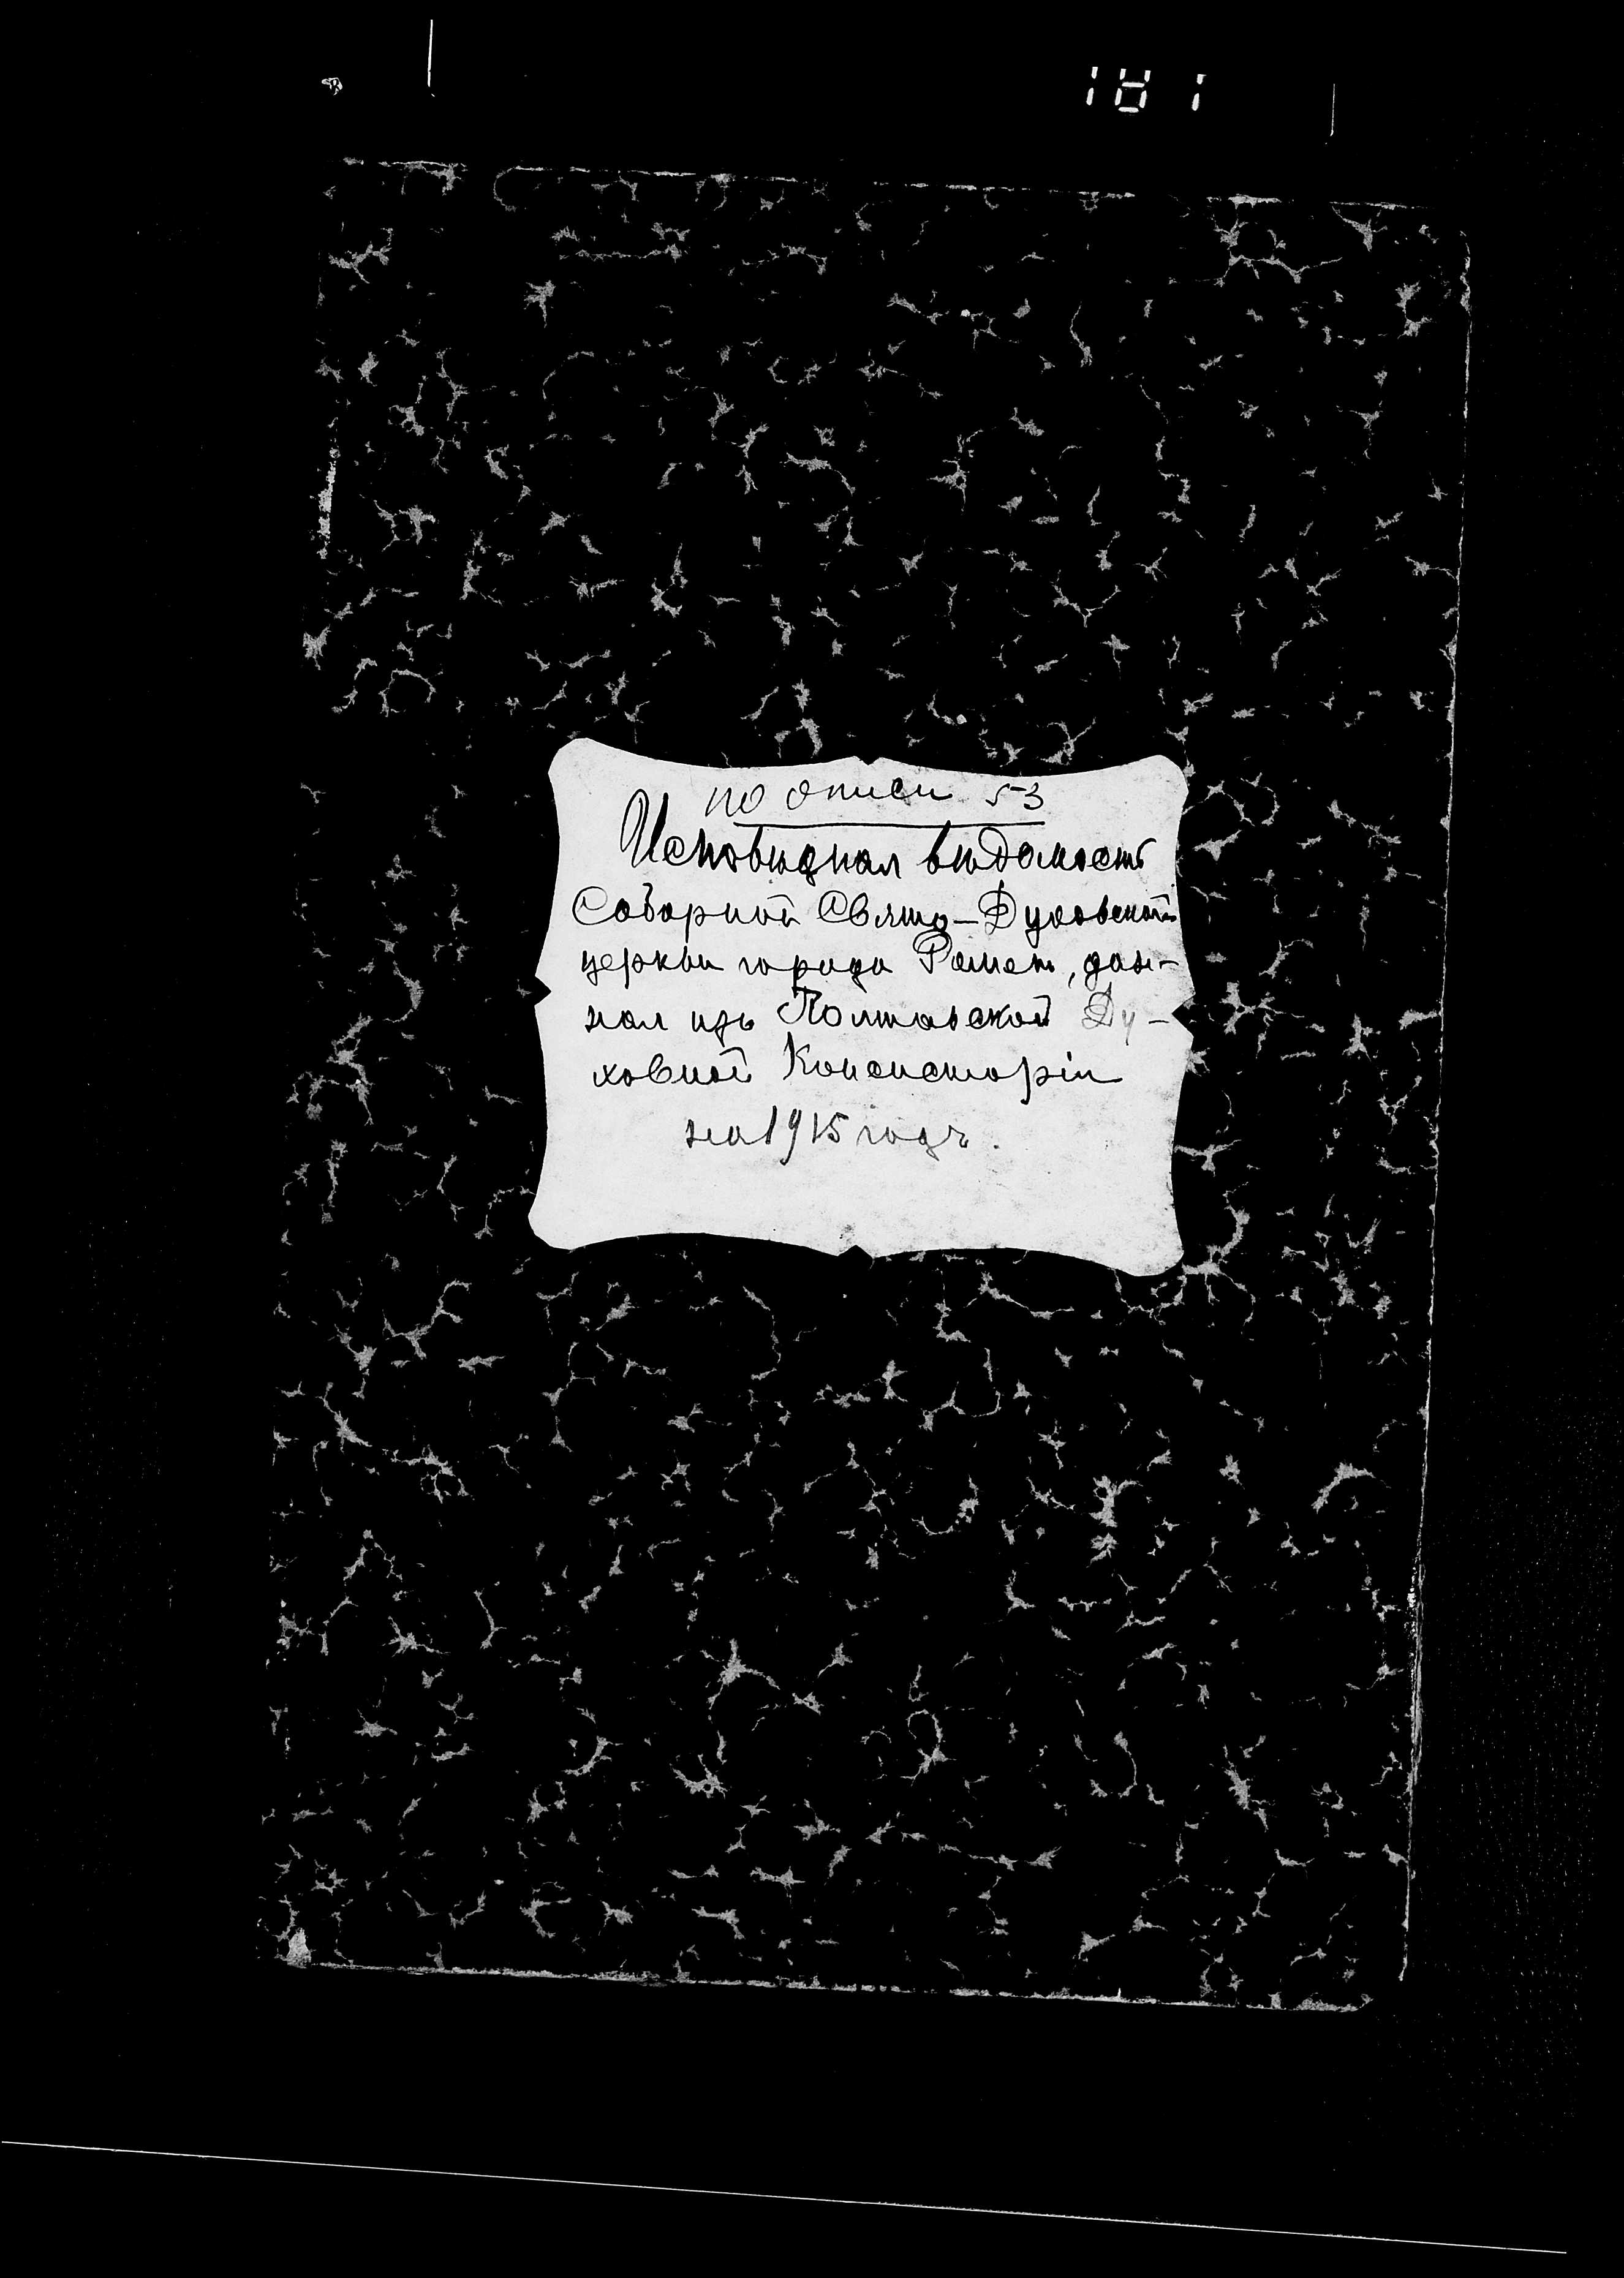 181
по описи 53
Исповѣдная вѣдомость
Соборной Свято-Духовской
церкви города Ромен, дан-
ная изъ Полтавской Ду-
ховной Консисторіи
на 1915 годъ.